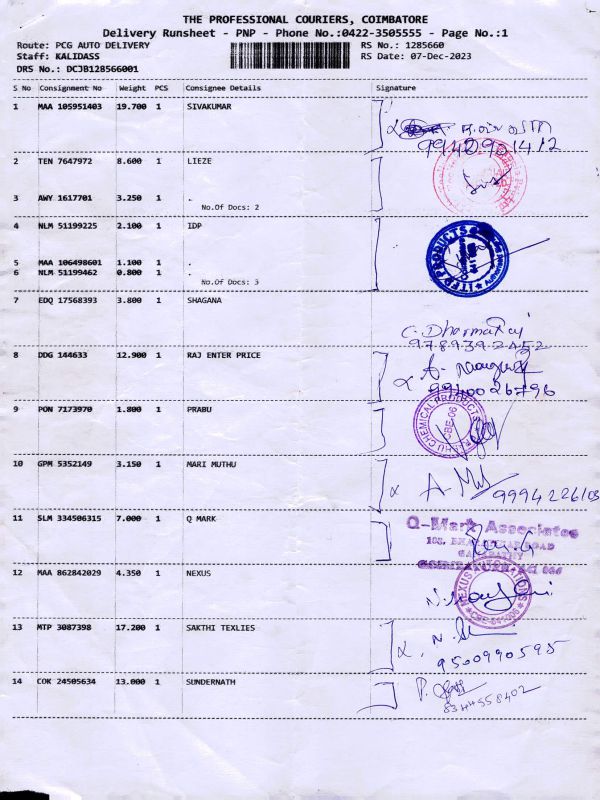 THE PROFESSIONAL COURIERS, COIMBATORE
Delivery Runsheet - PNP - Phone No.:0422-3505555 - Page No.:1
Route: PCG AUTO DELIVERY RS No.: 1285660
Staff: KALIDASS RS Date: 07-Dec-2023
DRS No.: DCJB128566001
S No Consignment No Weight PCS Consignee Details Signature
1 MAA 105951403 19.700 1 SIVAKUMAR
9942901412
2 TEN 7647972 8.600 1 LIEZE
3 AWY 1617701 3.250 1 .
No.Of Docs: 2
4 NLM 51199225 2.100 1 IDP
PRODUCTS
5 MAA 106498601 1.100 1 .
6 NLM 51199462 0.800 1 .
No.Of Docs: 3
7 EDQ 17568393 3.800 1 SHAGANA
C. Dharmaraj
9789392452
8 DDG 144633 12.900 1 RAJ ENTER PRICE
9940026796
9 PON 7173970 1.800 1 PRABU
CHEMICAL PRODUCTS
CBE-06
10 GPM 5352149 3.150 1 MARI MUTHU
11 SLM 334506315 7.000 1 Q MARK
Q-Mark Associates
12 MAA 862842029 4.350 1 NEXUS
NEXUS
13 MTP 3087398 17.200 1 SAKTHI TEXLIES
9500990595
14 COK 24505634 13.000 1 SUNDERNATH
8344558402